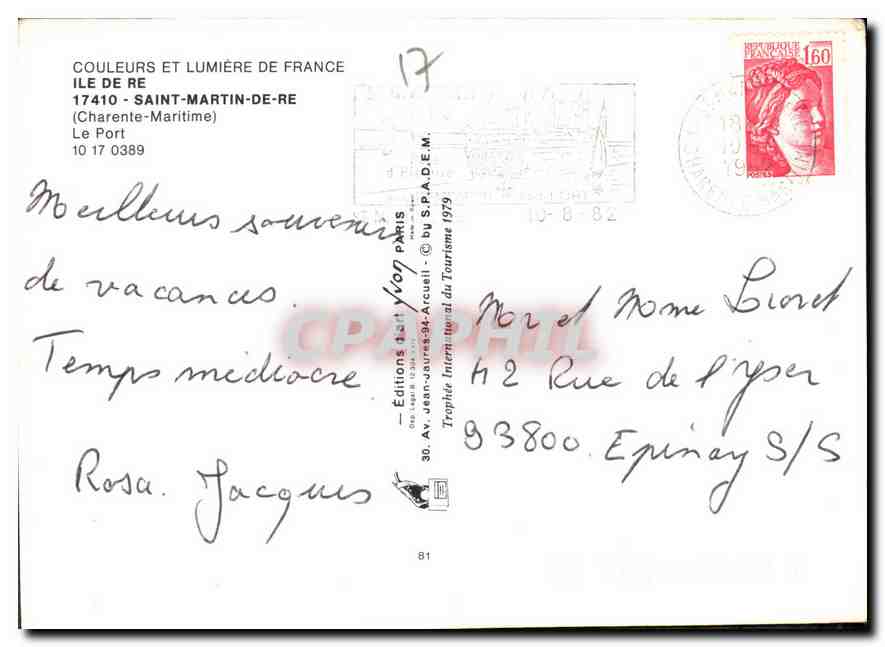 COULEURS ET LUMIÈRE DE FRANCE
ILE DE RE
17410 - SAINT-MARTIN-DE-RE
(Charente-Maritime)
Le Port
10 17 0389
17
REPUBLIQUE
FRANÇAISE
1,60
10-8-82
Meilleurs souvenirs
de vacances.
Temps médiocre
Rosa. Jacques
— Éditions d'art yvon PARIS
30. Av. Jean-Jaures-94-Arcueil - © by S.P.A.D.E.M.
Trophée International du Tourisme 1979
81
Mr et Mme Lioret
42 Rue de l'Yser
93800. Epinay S/S
CPAPHIL